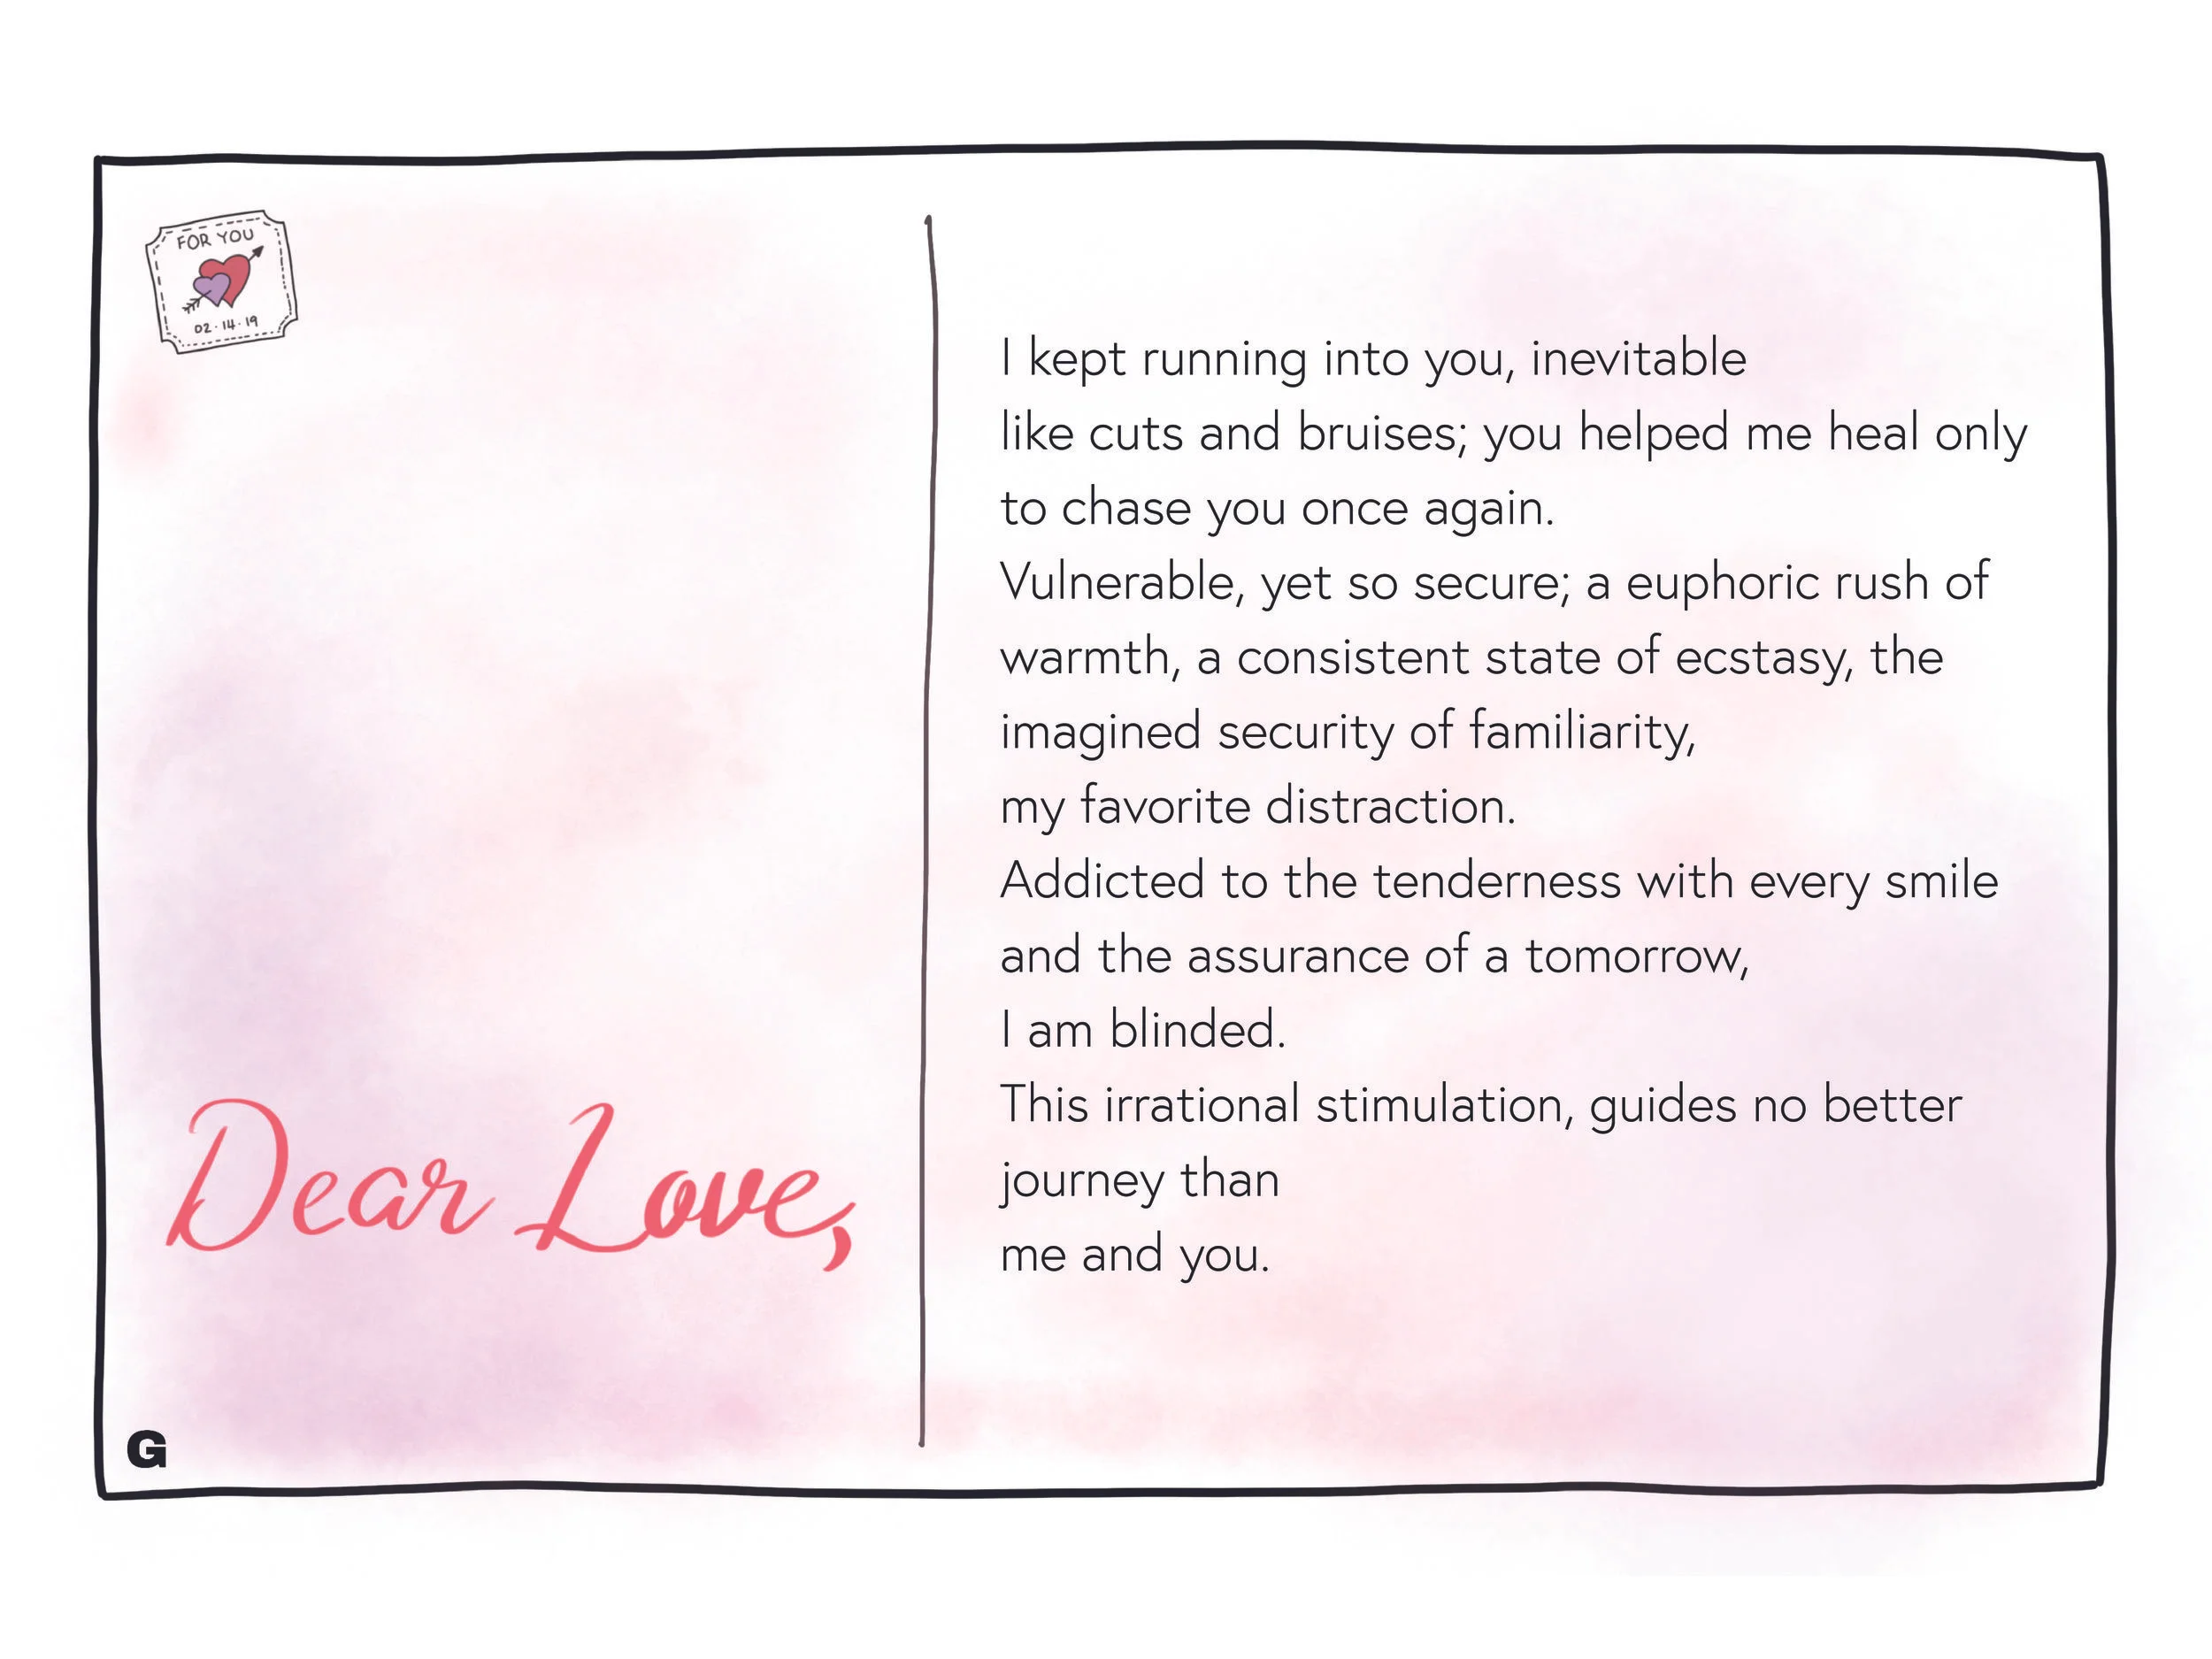 FOR YOU
02·14·19
Dear Love,
G
I kept running into you, inevitable
like cuts and bruises; you helped me heal only
to chase you once again.
Vulnerable, yet so secure; a euphoric rush of
warmth, a consistent state of ecstasy, the
imagined security of familiarity,
my favorite distraction.
Addicted to the tenderness with every smile
and the assurance of a tomorrow,
I am blinded.
This irrational stimulation, guides no better
journey than
me and you.